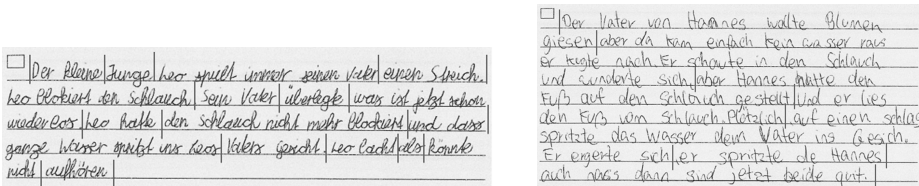 Der kleine Junge Leo spielt immer seinen Vater einen Streich.
Leo blokiert den Schlauch. Sein Vater überlegte was ist jetzt schon
wieder los Leo hatte den Schlauch nicht mehr blockiert und dass
ganze Wasser spritzt ins Leos Vaters gesicht. Leo lacht als könnte
nicht aufhören
Der Vater von Hannes wollte Blumen
giesen aber da kam einfach kein wasser raus
er kukte nach. Er schaute in den Schlauch
und wunderte sich aber Hannes hatte den
Fuß auf den Schlauch gestellt Und er lies
den Fuß vom Schlauch. Plötzlich auf einen schlag
spritzte das Wasser dem Vater ins Gesich.
Er ergerte sich er spritzte de Hannes
auch nass dann sind jetzt beide quit.